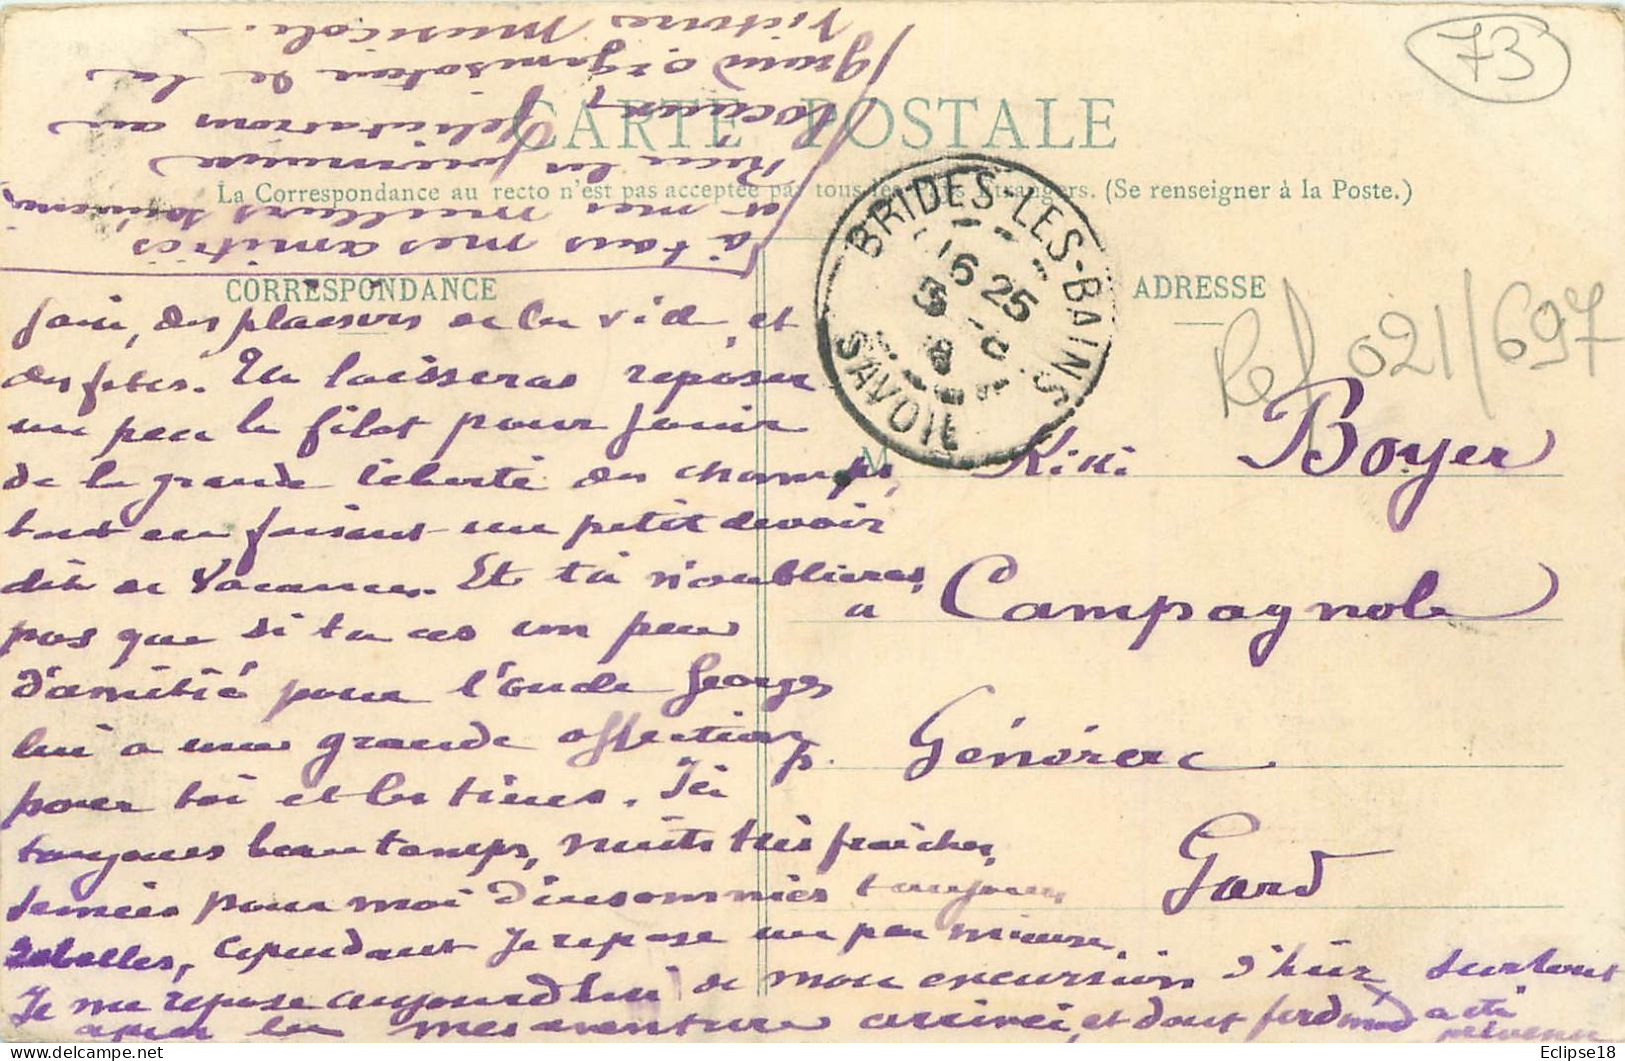 73
CARTE POSTALE
La Correspondance au recto n'est pas acceptée par tous les pays étrangers. (Se renseigner à la Poste.)
CORRESPONDANCE
ADRESSE
BRIDES-LES-BAINS
16 25
SAVOIE
Ref 021/697
M Kiki Boyer
a Campagnole
p. Générac
Gard
jouir, des plaisirs de la vie et
des fetes. Tu laisseras reposer
un peu le filet pour jouir
de la grande liberté des champs,
tout en faisant un petit devoir
dit de Vacances. Et tu n'oublieras
pas que si tu as un peu
d'amitié pour l'oncle Georges
lui a une grande affection
pour toi et les tiens. Ici
toujours beau temps, nuits très fraîches,
semées pour moi d'insomnies toujours
rebelles, cependant je repose un peu mieux
Je me repose aujourd'hui de mon excursion d'hier surtout
apres la mesaventure arrivée, et dont ferdinand a été
prévenu
à tous mes amitiés
et mes meilleurs souvenirs
Recu les journaux
Felicitations au
grand organisateur de la
Victoires Musicale.
Eclipse18